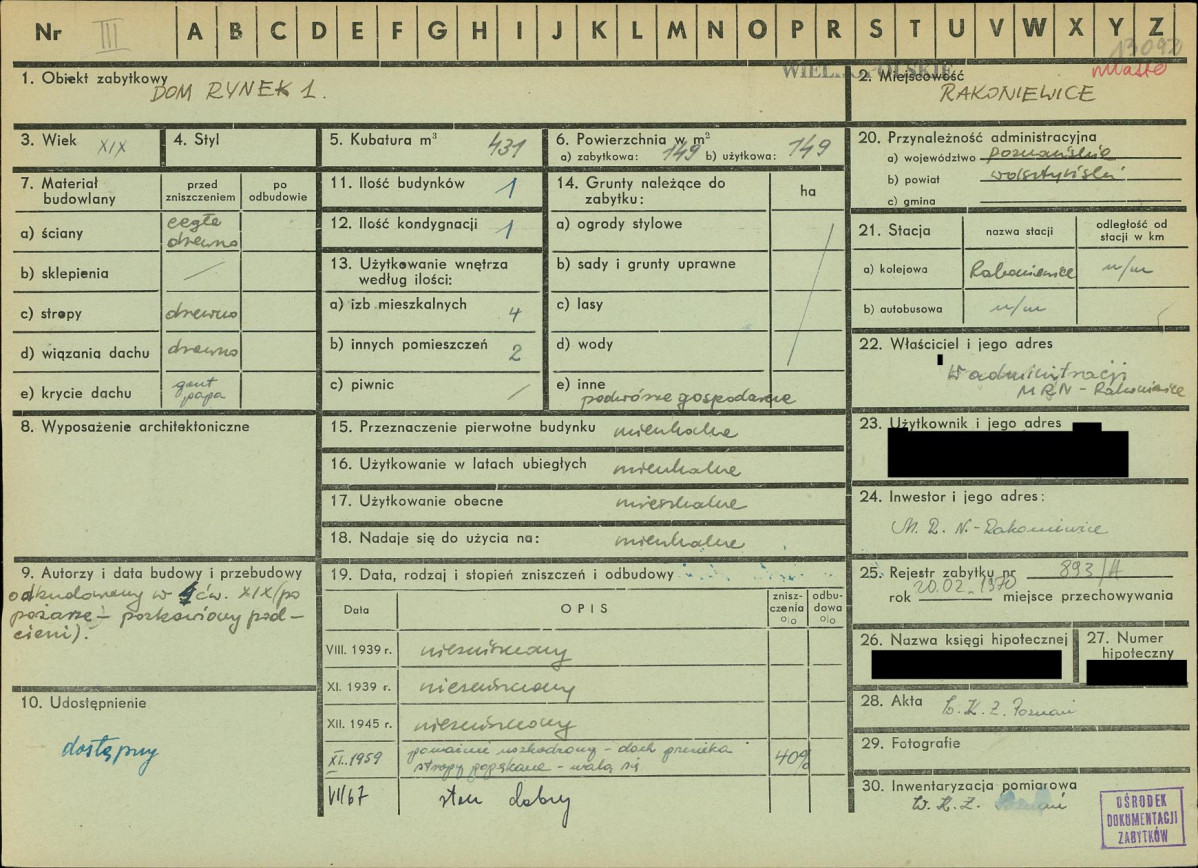 Nr III A B C D E F G H I J K L M N O P R S T U V W X Y Z
13092
WIELKOPOLSKIE
miasto
1. Obiekt zabytkowy
DOM RYNEK 1.
2. Miejscowość
RAKONIEWICE
3. Wiek XIX
4. Styl
5. Kubatura m³ 431
6. Powierzchnia w m²
a) zabytkowa: 149 b) użytkowa: 149
7. Materiał budowlany
przed zniszczeniem
po odbudowie
a) ściany cegła drewno
b) sklepienia /
c) stropy drewno
d) wiązania dachu drewno
e) krycie dachu gont papa
8. Wyposażenie architektoniczne
9. Autorzy i data budowy i przebudowy
odbudowany w 4 ćw. XIX (po
pożarze – pozbawiony pod-
cieni).
10. Udostępnienie
dostępny
11. Ilość budynków 1
12. Ilość kondygnacji 1
13. Użytkowanie wnętrza
według ilości:
a) izb mieszkalnych 4
b) innych pomieszczeń 2
c) piwnic /
14. Grunty należące do
zabytku:
ha
a) ogrody stylowe
b) sady i grunty uprawne
c) lasy
d) wody
e) inne
podwórze gospodarcze
15. Przeznaczenie pierwotne budynku mieszkalne
16. Użytkowanie w latach ubiegłych mieszkalne
17. Użytkowanie obecne mieszkalne
18. Nadaje się do użycia na: mieszkalne
19. Data, rodzaj i stopień zniszczeń i odbudowy
Data
OPIS
znisz-
czenia
%
odbu-
dowa
%
VIII. 1939 r. niezniszczony
XI. 1939 r. niezniszczony
XII. 1945 r. niezniszczony
XI. 1959 poważnie uszkodzony – dach przecieka
stropy popękane – walą się 40%
VII/67 stan dobry
20. Przynależność administracyjna
a) województwo poznańskie
b) powiat wolsztyński
c) gmina
21. Stacja
nazwa stacji
odległość od
stacji w km
a) kolejowa Rakoniewice n/m
b) autobusowa n/m
22. Właściciel i jego adres
W administracji
MRN – Rakoniewice
23. Użytkownik i jego adres
24. Inwestor i jego adres:
M. R. N. – Rakoniewice
25. Rejestr zabytku nr 893/A
rok 20.02.1970 miejsce przechowywania
26. Nazwa księgi hipotecznej
27. Numer
hipoteczny
28. Akta W. K. Z. Poznań
29. Fotografie
30. Inwentaryzacja pomiarowa
W. K. Z. Poznań
OŚRODEK
DOKUMENTACJI
ZABYTKÓW